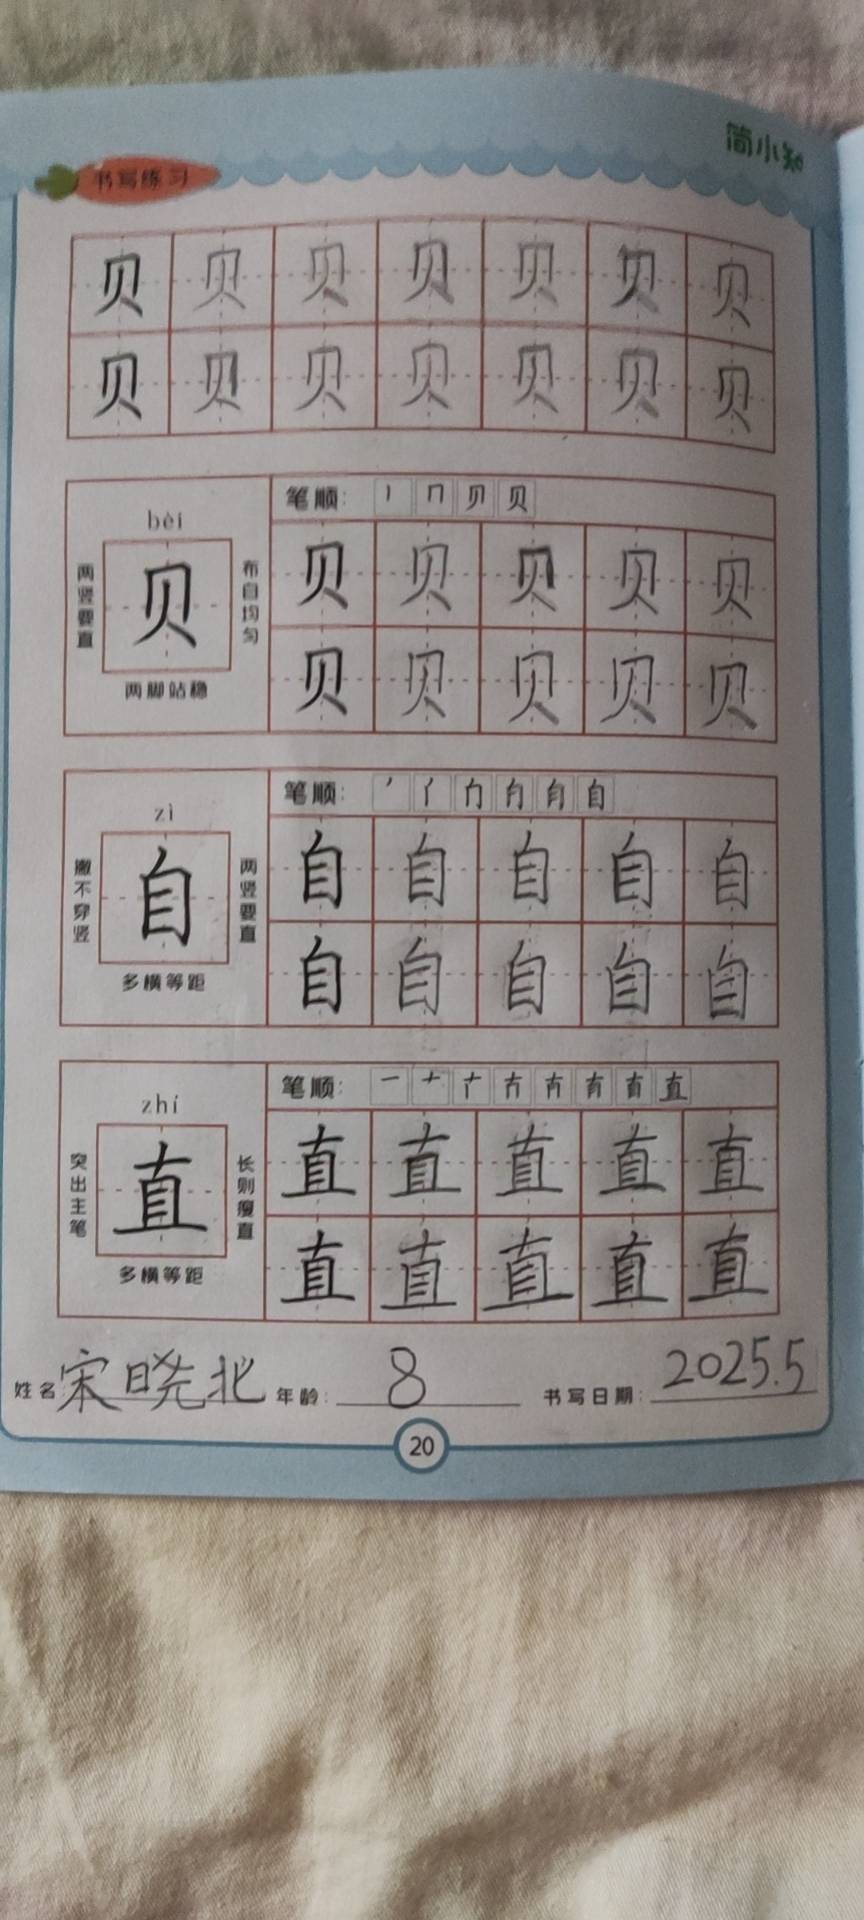 简小知
书写练习
贝 贝 贝 贝 贝 贝 贝
贝 贝 贝 贝 贝 贝 贝
bèi
贝
两竖要直
布白均匀
两脚站稳
笔顺: 丨 冂 贝 贝
贝 贝 贝 贝 贝
贝 贝 贝 贝 贝
zì
自
撇不穿竖
两竖要直
多横等距
笔顺:
自 自 自 自 自
自 自 自 自 自
zhí
直
突出主笔
长则瘦直
多横等距
笔顺: 一 十
直 直 直 直 直
直 直 直 直 直
姓名:宋晓北 年龄:8 书写日期:2025.5
20